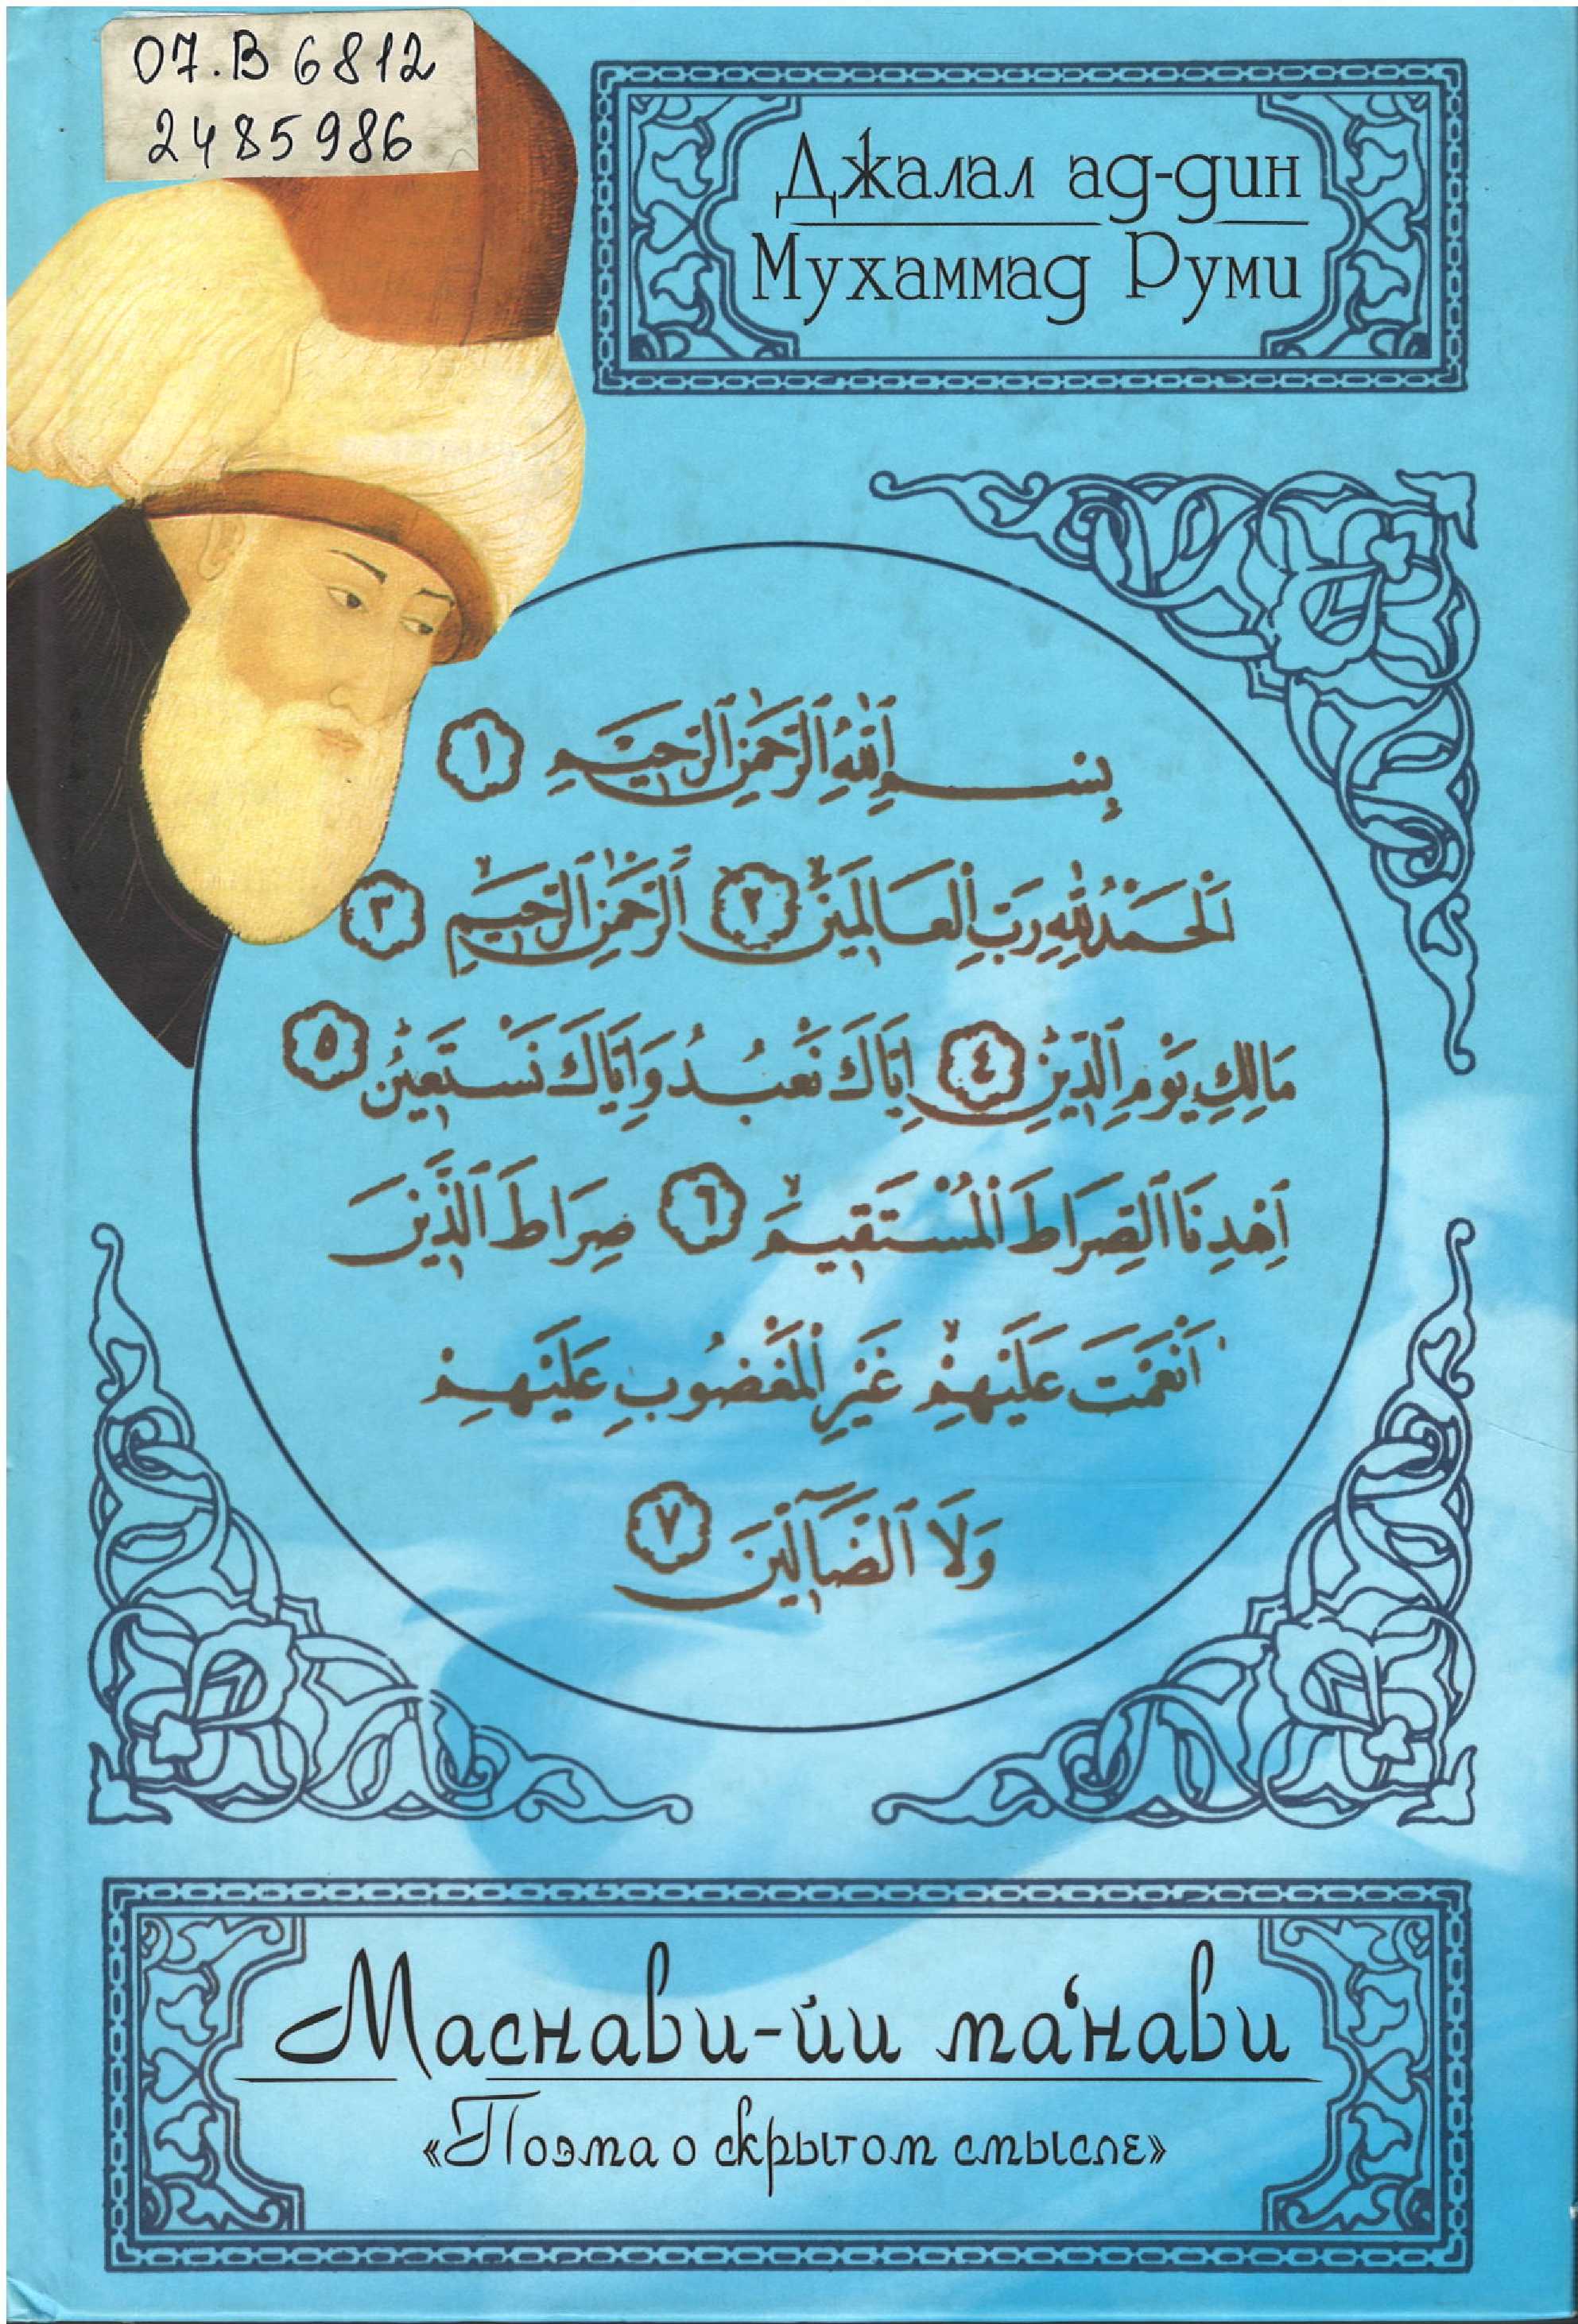 07.В 6812
2485986
Джалал ад-дин
Мухаммад Руми
بِسْمِ ٱللَّهِ ٱلرَّحْمَٰنِ ٱلرَّحِيمِ ١
اَلْحَمْدُ لِلَّهِ رَبِّ ٱلْعَالَمِينَ ٢ اَلرَّحْمَٰنِ ٱلرَّحِيمِ ٣
مَالِكِ يَوْمِ ٱلدِّينِ ٤ اِيَّاكَ نَعْبُدُ وَاِيَّاكَ نَسْتَعِينُ ٥
اِهْدِنَا ٱلصِّرَاطَ ٱلْمُسْتَقِيمَ ٦ صِرَاطَ ٱلَّذِينَ
اَنْعَمْتَ عَلَيْهِمْ غَيْرِ ٱلْمَغْضُوبِ عَلَيْهِمْ
وَلَا ٱلضَّآلِّينَ ٧
Маснави-йи ма‘нави
«Поэма о скрытом смысле»